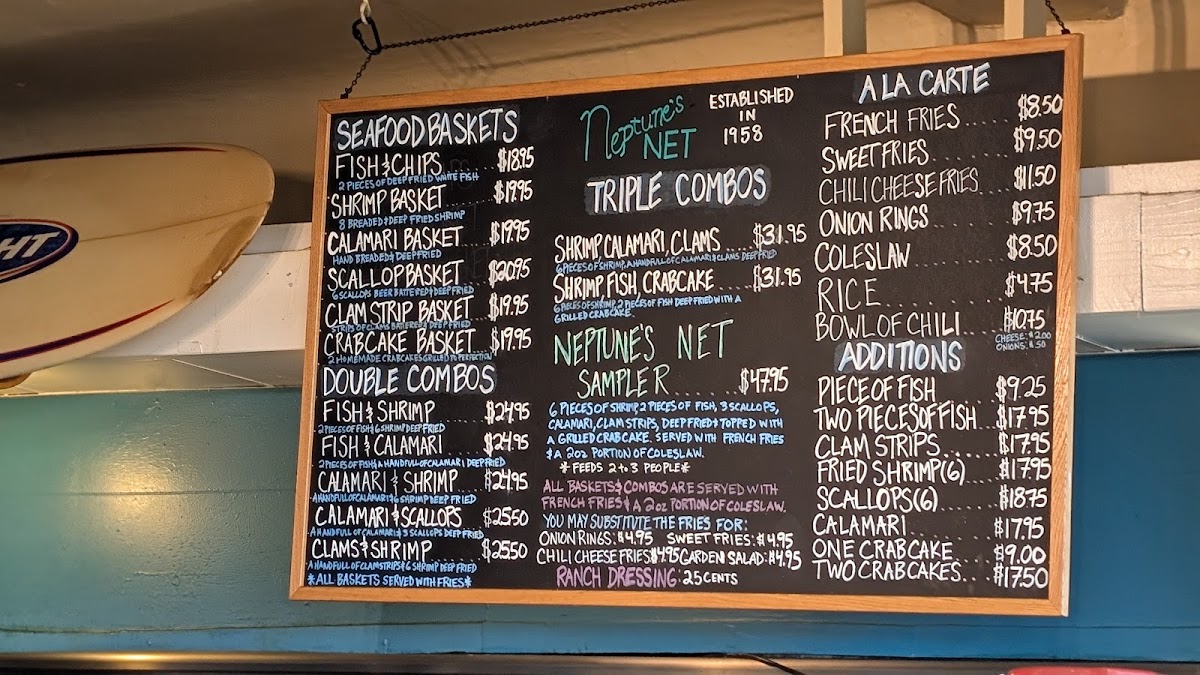 HT
SEAFOOD BASKETS
FISH & CHIPS $18.95
2 PIECES OF DEEP FRIED WHITE FISH
SHRIMP BASKET $19.95
8 BREADED & DEEP FRIED SHRIMP
CALAMARI BASKET $19.95
HAND BREADED & DEEP FRIED
SCALLOP BASKET $20.95
6 SCALLOPS BEER BATTERED & DEEP FRIED
CLAM STRIP BASKET $19.95
STRIPS OF CLAMS BATTERED & DEEP FRIED
CRABCAKE BASKET $19.95
2 HOMEMADE CRABCAKES GRILLED TO PERFECTION
DOUBLE COMBOS
FISH & SHRIMP $24.95
2 PIECES OF FISH & 6 SHRIMP DEEP FRIED
FISH & CALAMARI $24.95
2 PIECES OF FISH & A HANDFUL OF CALAMARI DEEP FRIED
CALAMARI & SHRIMP $24.95
A HANDFULL OF CALAMARI & 6 SHRIMP DEEP FRIED
CALAMARI & SCALLOPS $25.50
A HANDFULL OF CALAMARI & 3 SCALLOPS DEEP FRIED
CLAMS & SHRIMP $25.50
A HANDFULL OF CLAM STRIPS & 6 SHRIMP DEEP FRIED
*ALL BASKETS SERVED WITH FRIES*
Neptune's NET
ESTABLISHED
IN
1958
TRIPLE COMBOS
SHRIMP, CALAMARI, CLAMS $31.95
6 PIECES OF SHRIMP, A HANDFUL OF CALAMARI & CLAMS DEEP FRIED
SHRIMP, FISH, CRABCAKE $31.95
6 PIECES OF SHRIMP, 2 PIECES OF FISH DEEP FRIED WITH A
GRILLED CRABCAKE.
NEPTUNE'S NET
SAMPLER $47.95
6 PIECES OF SHRIMP, 2 PIECES OF FISH, 3 SCALLOPS,
CALAMARI, CLAM STRIPS, DEEP FRIED & TOPPED WITH
A GRILLED CRABCAKE. SERVED WITH FRENCH FRIES
& A 2oz PORTION OF COLESLAW.
*FEEDS 2 to 3 PEOPLE*
ALL BASKETS & COMBOS ARE SERVED WITH
FRENCH FRIES & A 2oz PORTION OF COLESLAW.
YOU MAY SUBSTITUTE THE FRIES FOR:
ONION RINGS: $4.95 SWEET FRIES: $4.95
CHILI CHEESE FRIES $4.95 GARDEN SALAD: $4.95
RANCH DRESSING: 25 CENTS
A LA CARTE
FRENCH FRIES $8.50
SWEET FRIES $9.50
CHILI CHEESE FRIES $11.50
ONION RINGS $9.75
COLESLAW $8.50
RICE $4.75
BOWL OF CHILI $10.75
CHEESE: $2.00
ONIONS: $.50
ADDITIONS
PIECE OF FISH $9.25
TWO PIECES OF FISH $17.95
CLAM STRIPS $17.95
FRIED SHRIMP (6) $17.95
SCALLOPS (6) $18.75
CALAMARI $17.95
ONE CRABCAKE $9.00
TWO CRABCAKES $17.50